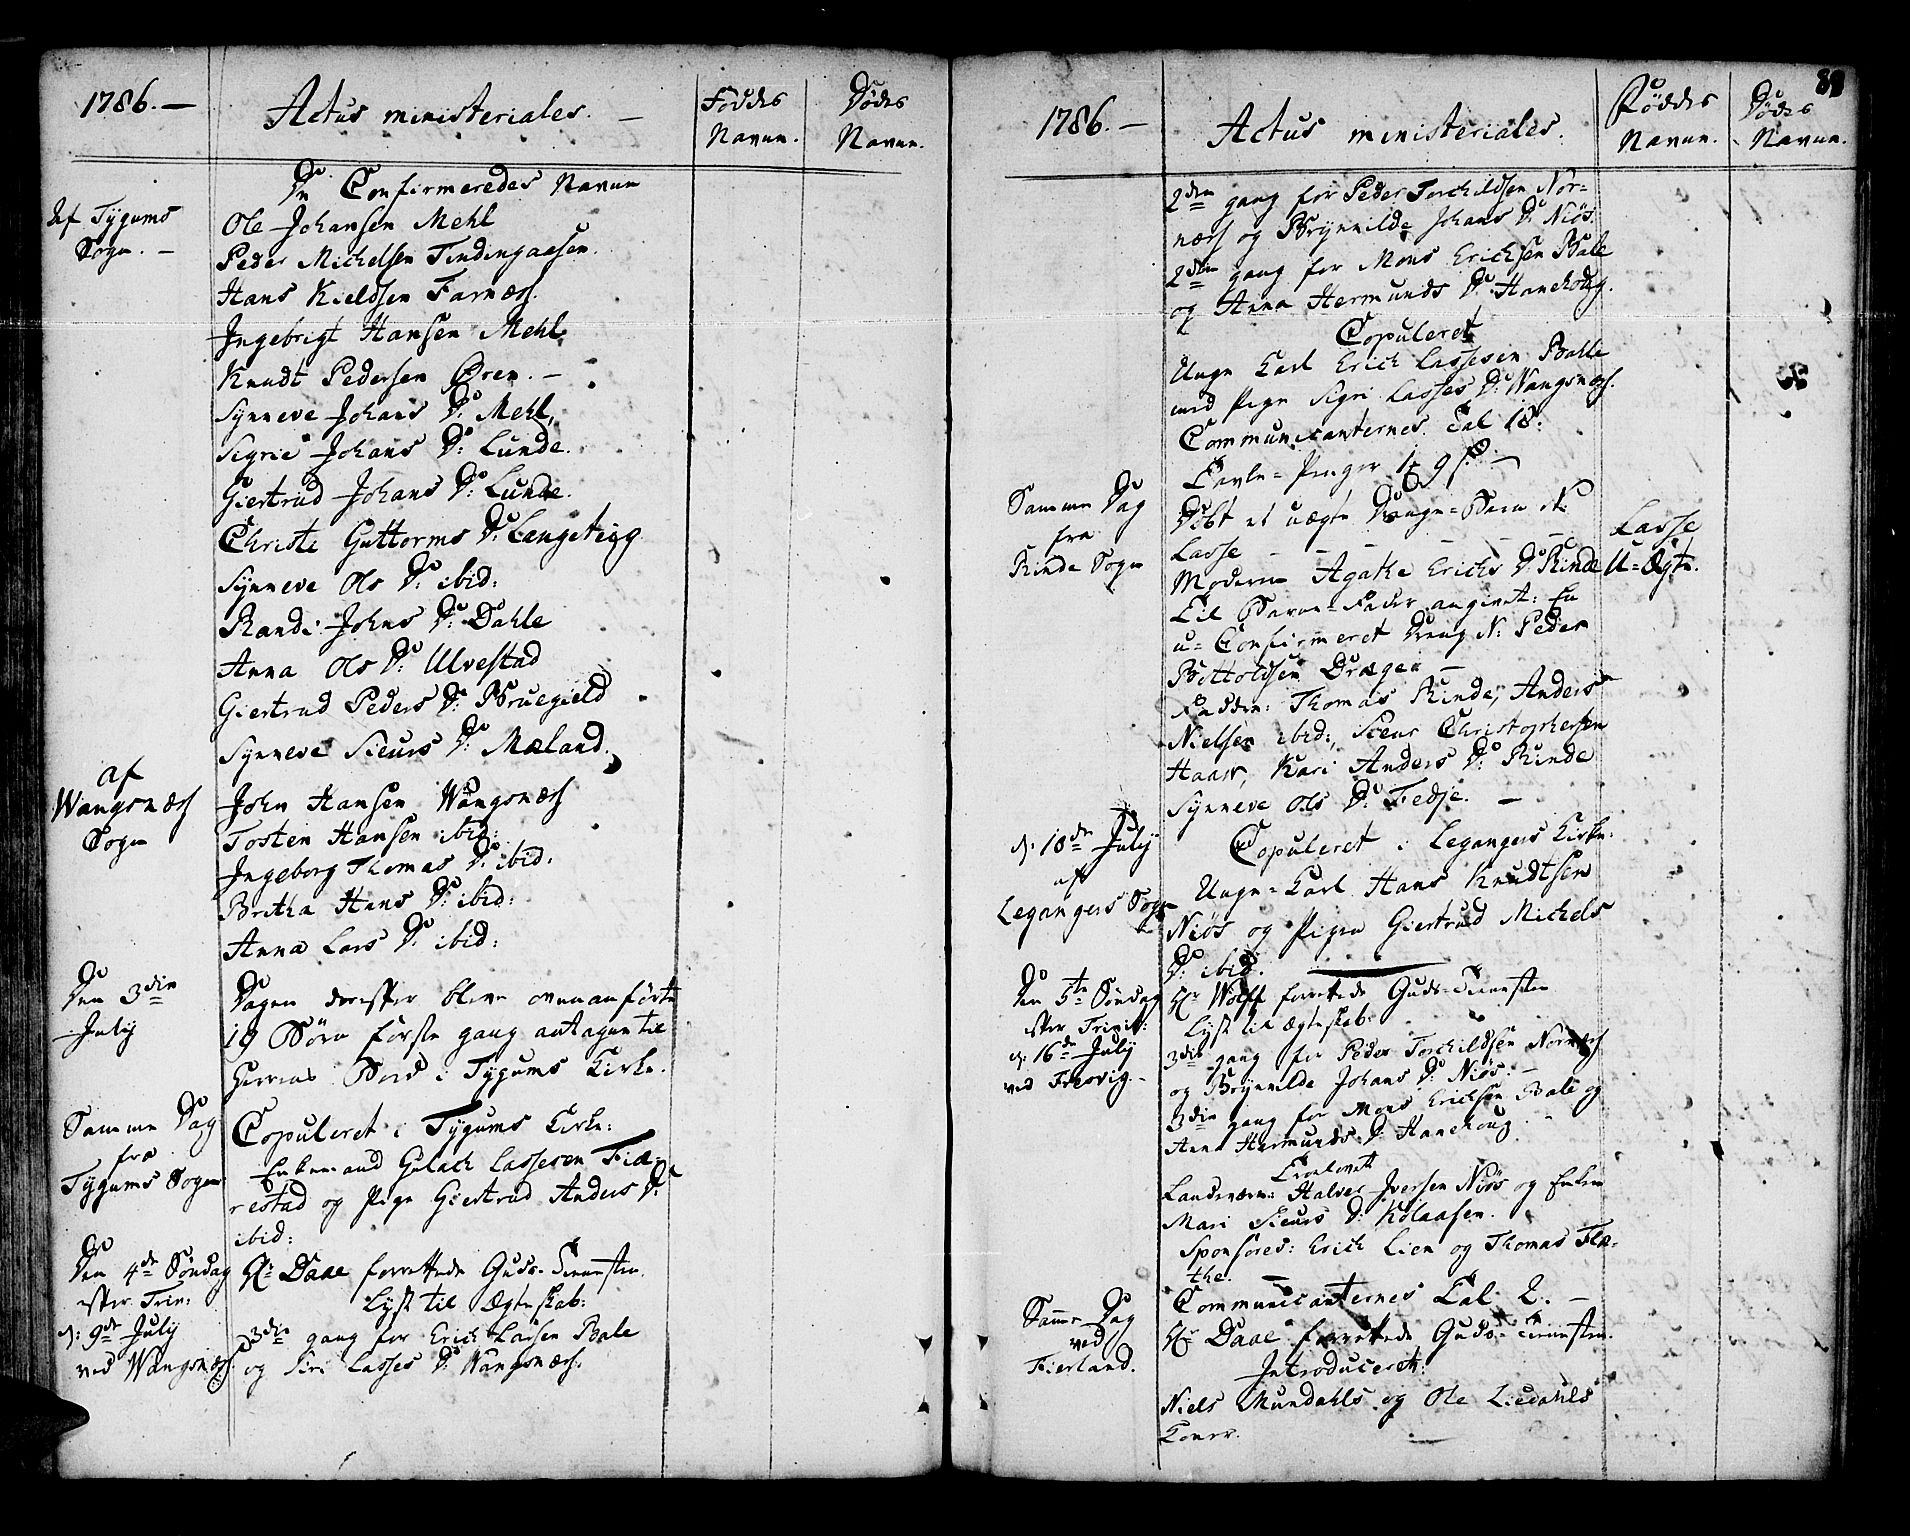 1786. —
Actus ministeriales. —
Føddes Navne.
Dødes Navne.
De Confirmeredes Navne
Af Tygums Sogn. —
Ole Johansen Mehl
Peder Michelsen Tindingaasen.
Hans Kieldsen Farnæss.
Ingebrigt Hansen Mehl.
Knudt Pedersen Øren. —
Synneve Johans D: Mehl,
Sigrie Johans D: Lunde.
Giertrud Johans D: Lunde.
Christi Guttorms D: Langeteig
Synneve Ols D: ibid:
Randi Johns D: Dahle
Anna Ols D: Ulvestad
Giertrud Peders D: Bruegield
Synneve Sieurs D: Mæland.
af Wangsnæss Sogn
John Hansen Wangsnæss
Tosten Hansen ibid:
Ingeborg Thomas D: ibid:
Britha Hans D: ibid:
Anna Lars D: ibid:
Den 3die July
Dagen derefter bleve ovenanførte
19 Børn første gang antagne til
Herrens Bord i Tygums Kirke.
Samme Dag fra Tygums Sogn
Copuleret i Tygums Kirke:
Enkemand Gulach Lassesen Fiæ-
restad og Pige Giertrud Anders D:
ibid:
Den 4de Søndag efter Trin: d: 9de July ved Wangsnæss.
Hr Daae forrettede Guds-Tienesten.
Lyst til Ægteskab:
3die gang for Erich Larsen Bale
og Siri Lasses D: Wangsnæss.
1786. —
Actus ministeriales.
Føddes Navne.
Dødes Navne.
2den gang for Peder Torchildsen Nor-
næss og Brynnilde Johans D: Niøs.
2den gang for Mons Erichsen Bale
og Anna Hermunds D: Hanehoug.
Copuleret
Unge Karl Erich Lassesen Bahle
med Pige Sigri Lasses D: Wangsnæss.
Communicanternes Tal 18.
Tavle-Penger
Samme Dag fra Rinde Sogn
Døbt et uægte Drenge-Barn N:
Lasse — — — — —
Lasse
U-Ægte.
Moderen Agathe Erichs D: Rinde
Til Barne-Fader angivet: En
u-Confirmeret Dreng N: Peder
Bottoldsen Drægen —
Fadder: Thomas Rinde, Anders
Nielsen ibid:, Sieur Christophersen
Haaw, Kari Anders D: Rinde
Synneve Ols D: Fedje. —
d: 10de July af Legangers Sogn
Copuleret i Legangers Kirke:
Unge-Karl Hans Knudtsen
Niøs og Pigen Giertrud Michels
D: ibid.
Den 5te Søndag efter Trinit: d: 16de July ved Fresvig. —
Hr Wolff forrettede Guds-Tienesten
Lyst til Ægteskab:
3die gang for Peder Torchildsen Nornæss
og Brynnilde Johans D: Niøs. —
3die gang for Mons Erichsen Bale og
Anna Hermunds D: Hanehoug.
Trolovet
Landværn: Halver Iversen Niøs og Enken
Mari Sieurs D: Kolaasen.
Sponsores: Erich Lien og Thomas Flæ-
the. —
Communicanternes Tal 2. —
Samme Dag ved Fierland.
Hr Daae forrettede Guds-Tienesten.
Introduceret:
Niels Mundahls og Ole Liedahls
Koner.